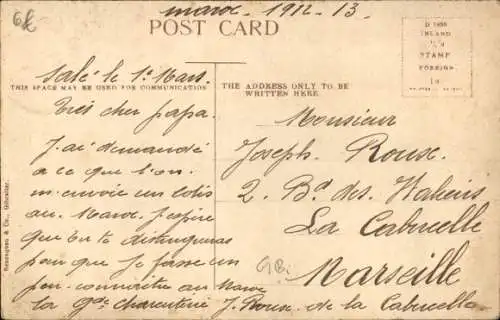 maroc 1912-13
POST CARD
INLAND
STAMP
FOREIGN
1D
THIS SPACE MAY BE USED FOR COMMUNICATION
THE ADDRESS ONLY TO BE
WRITTEN HERE
Salé le 1er Mars.
Très cher papa.
J'ai demandé
a ce que l'on
m'envoie un colis
au Maroc. J'espère
que tu te distingueras
pour que je fasse un
peu connaitre au Maroc
la Gde charcuterie J. Roux de la Cabucelle
Monsieur
Joseph Roux.
2. Bd des Italiens
La Cabucelle
Marseille
Beanland & Co., Gibraltar.